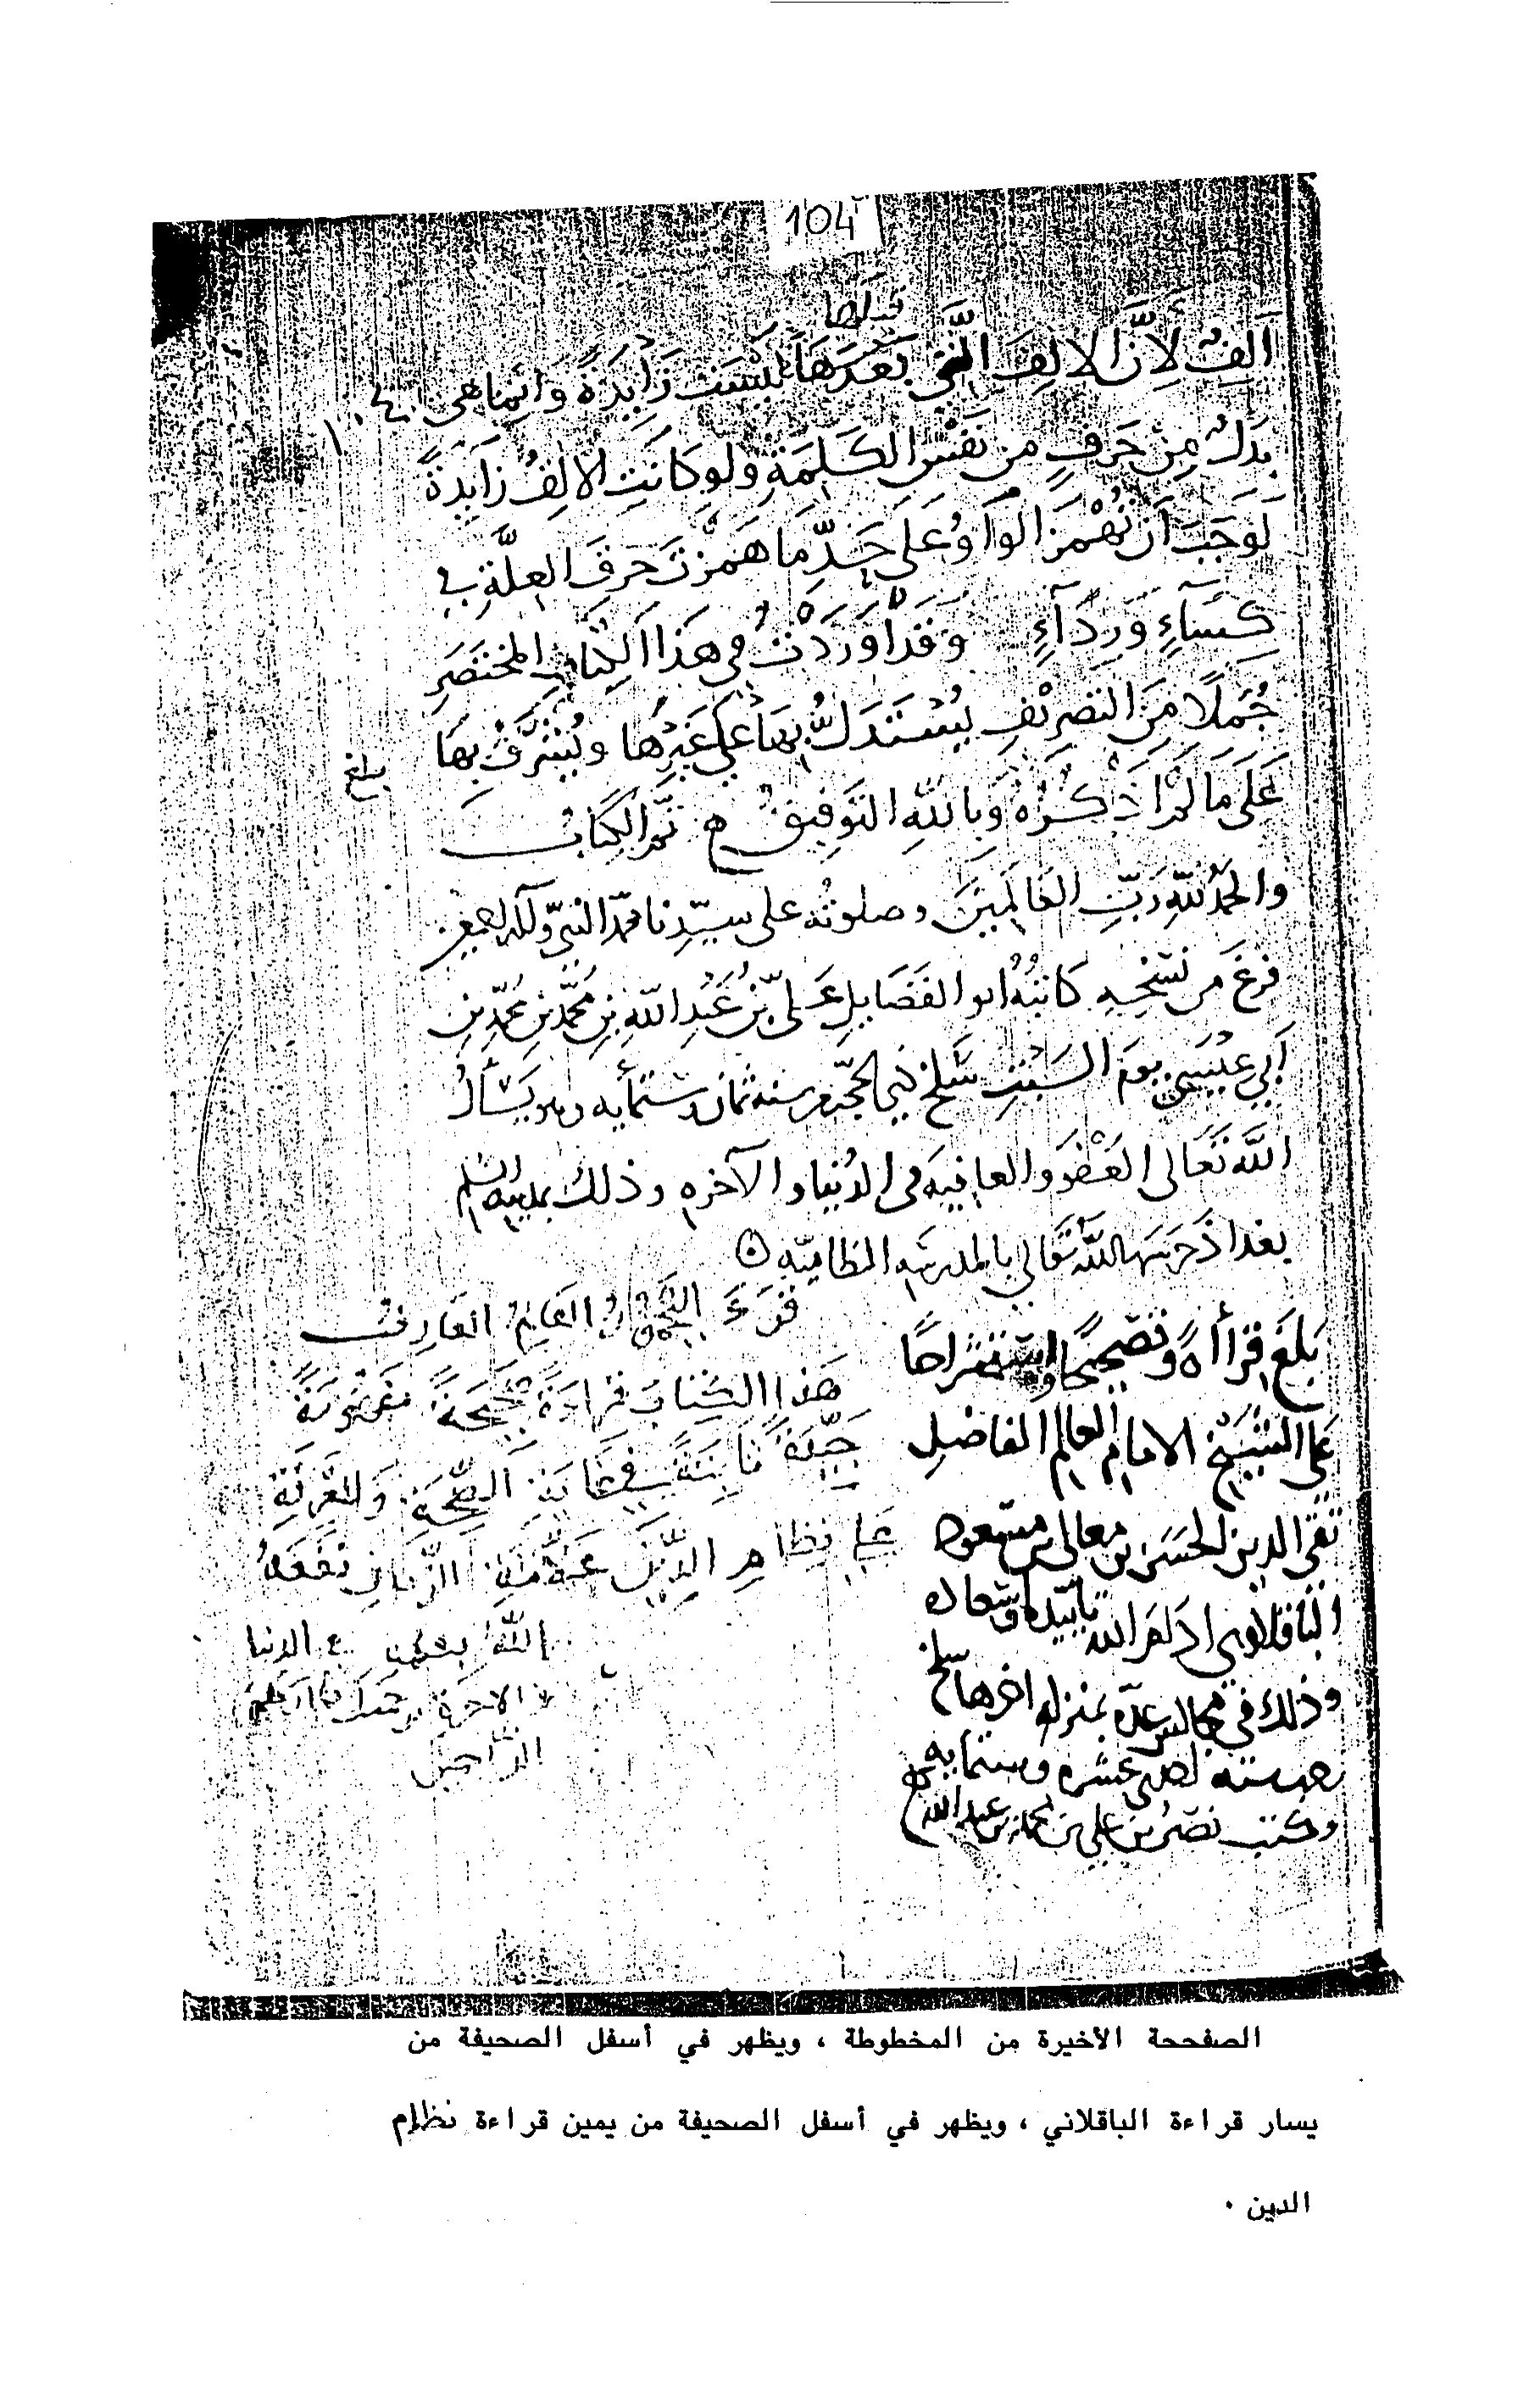 104
قبلها
اَلِفٌ لِاَنَّ الالِفَ الَّتي بَعْدَهَا لَيْسَت زَايِدَةً وَاِنما هي
١٠٤
بَدَلٌ مِنْ حَرفٍ من نَفْسِ الكَلِمَةِ ولو كَانَتِ الالِفُ زَايِدَةً
لَوَجَبَ اَن تُهْمَزَ الوَاوُ عَلَى حَدِّ مَا هَمَزْتَ حَرفَ العِلَّةِ في
كِسَاءٍ وَرِدَآءٍ وَقد اَوْرَدْتُ في هَذا الكِتَابِ المختَصَرِ
جُمَلًا مِنَ التصرِيْفِ يُسْتَدَلُّ بِهَا عَلَى غَيْرِهَا ويُشْرَفُ بِهَا
عَلَى مَا لَمْ اَذْكُرْهُ وَبِاللّهِ التَوفِيقُ تمَّ الكِتَابُ
بلغ
والحَمْدُ لِلّهِ رَبِّ العَالَمِيْنَ وصلوتُه على سيّدِنا محمّد النبيّ وآله اجمعين
فَرغَ من نَسْخِهِ كَاتِبُهُ ابو الفَضَايلِ عَلىّ بْنُ عَبْدِ اللّهِ بنِ مُحَمَّدِ بنِ مُحَمَّدِ بنِ
اَبي عِيْسَى يومَ السَبْتِ سَلخَ ذي الحجّة من سنة ثمان وستمأيه وهو يَسْألُ
اللّهَ تَعَالى العَفْوَ والعافِيَه في الدُنيا والآخره وذلك بمدينة السّلم
بغداذَ حَرَسَهَا اللّهُ تَعَالى بالمدرسَه النظاميّه
بَلَغَ قِرأاةً وتصحيحًا واستشراحًا
على الشيْخ الامام العالم الفاضِل
تقي الدين الحَسَن بن معالي بن مسعود
الباقلاوي اَدَامَ اللّه تأييدَه وسَعادته
وذلك في مجالس عدّة بمنزله اخرها سلخ
سنة عشره وستمايه
وكتب نصرُ بن علي بن محمد بن عبد الله
قَرَءَ العَالِمُ العَارِفُ
هَذا الكِتَابَ قِرَاءَةً صَحِيْحَةً مَرْضِيَّةً
جَيِّدَةً في غَايَةِ الصِّحَةِ
نِظامِ الدِّيْنِ الزَّمَانِ نَفَعَهُ
اللّهُ الدنيا
والاخرة برحمتك يا ارحم
الرّاحمين
الصفححة الاخيرة من المخطوطة ، ويظهر في أسفل الصحيفة من
يسار قراءة الباقلاني ، ويظهر في أسفل الصحيفة من يمين قراءة نظام
الدين ٠